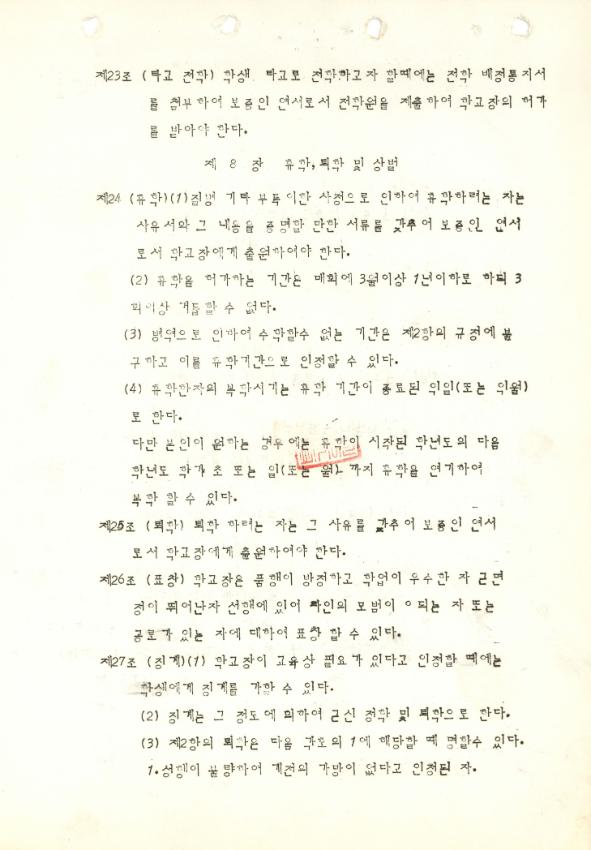 제23조 (타고 전학) 학생 타교로 전학하고자 할때에는 전학 배정통지서
를 첨부하여 보증인 연서로서 전학원을 제출하여 학교장의 허가
를 받아야 한다.
제 8 장 휴학, 퇴학 및 상벌
제24 (휴학)(1)질병 기타 부득이한 사정으로 인하여 휴학하려는 자는
사유서와 그 내용을 증명할 만한 서류를 갖추어 보증인 연서
로서 학교장에게 출원하여야 한다.
(2) 휴학을 허가하는 기간은 매회에 3월이상 1년이하로 하되 3
회이상 거듭할 수 없다.
(3) 병역으로 인하여 수학할수 없는 기간은 제2항의 규정에 불
구하고 이를 휴학기간으로 인정할 수 있다.
(4) 휴학한자의 복학시기는 휴학 기간이 종료된 익일(또는 익월)
로 한다.
다만 본인이 원하는 경우에는 휴학이 시작된 학년도의 다음
학년도 학기 초 또는 일(또는 월) 까지 휴학을 연기하여
복학 할 수 있다.
제25조 (퇴학) 퇴학 하려는 자는 그 사유를 갖추어 보증인 연서
로서 학교장에게 출원하여야 한다.
제26조 (표창) 학교장은 품행이 방정하고 학업이 우수한 자 근면
정이 뛰어난자 선행에 있어 타인의 모범이 이되는 자 또는
공로가 있는 자에 대하여 표창 할 수 있다.
제27조 (징계)(1) 학교장이 교육상 필요가 있다고 인정할 때에는
학생에게 징계를 가할 수 있다.
(2) 징계는 그 정도에 의하여 근신 정학 및 퇴학으로 한다.
(3) 제2항의 퇴학은 다음 각호의 1에 해당할 때 명할수 있다.
1. 성행이 불량하여 개전의 가망이 없다고 인정된 자.